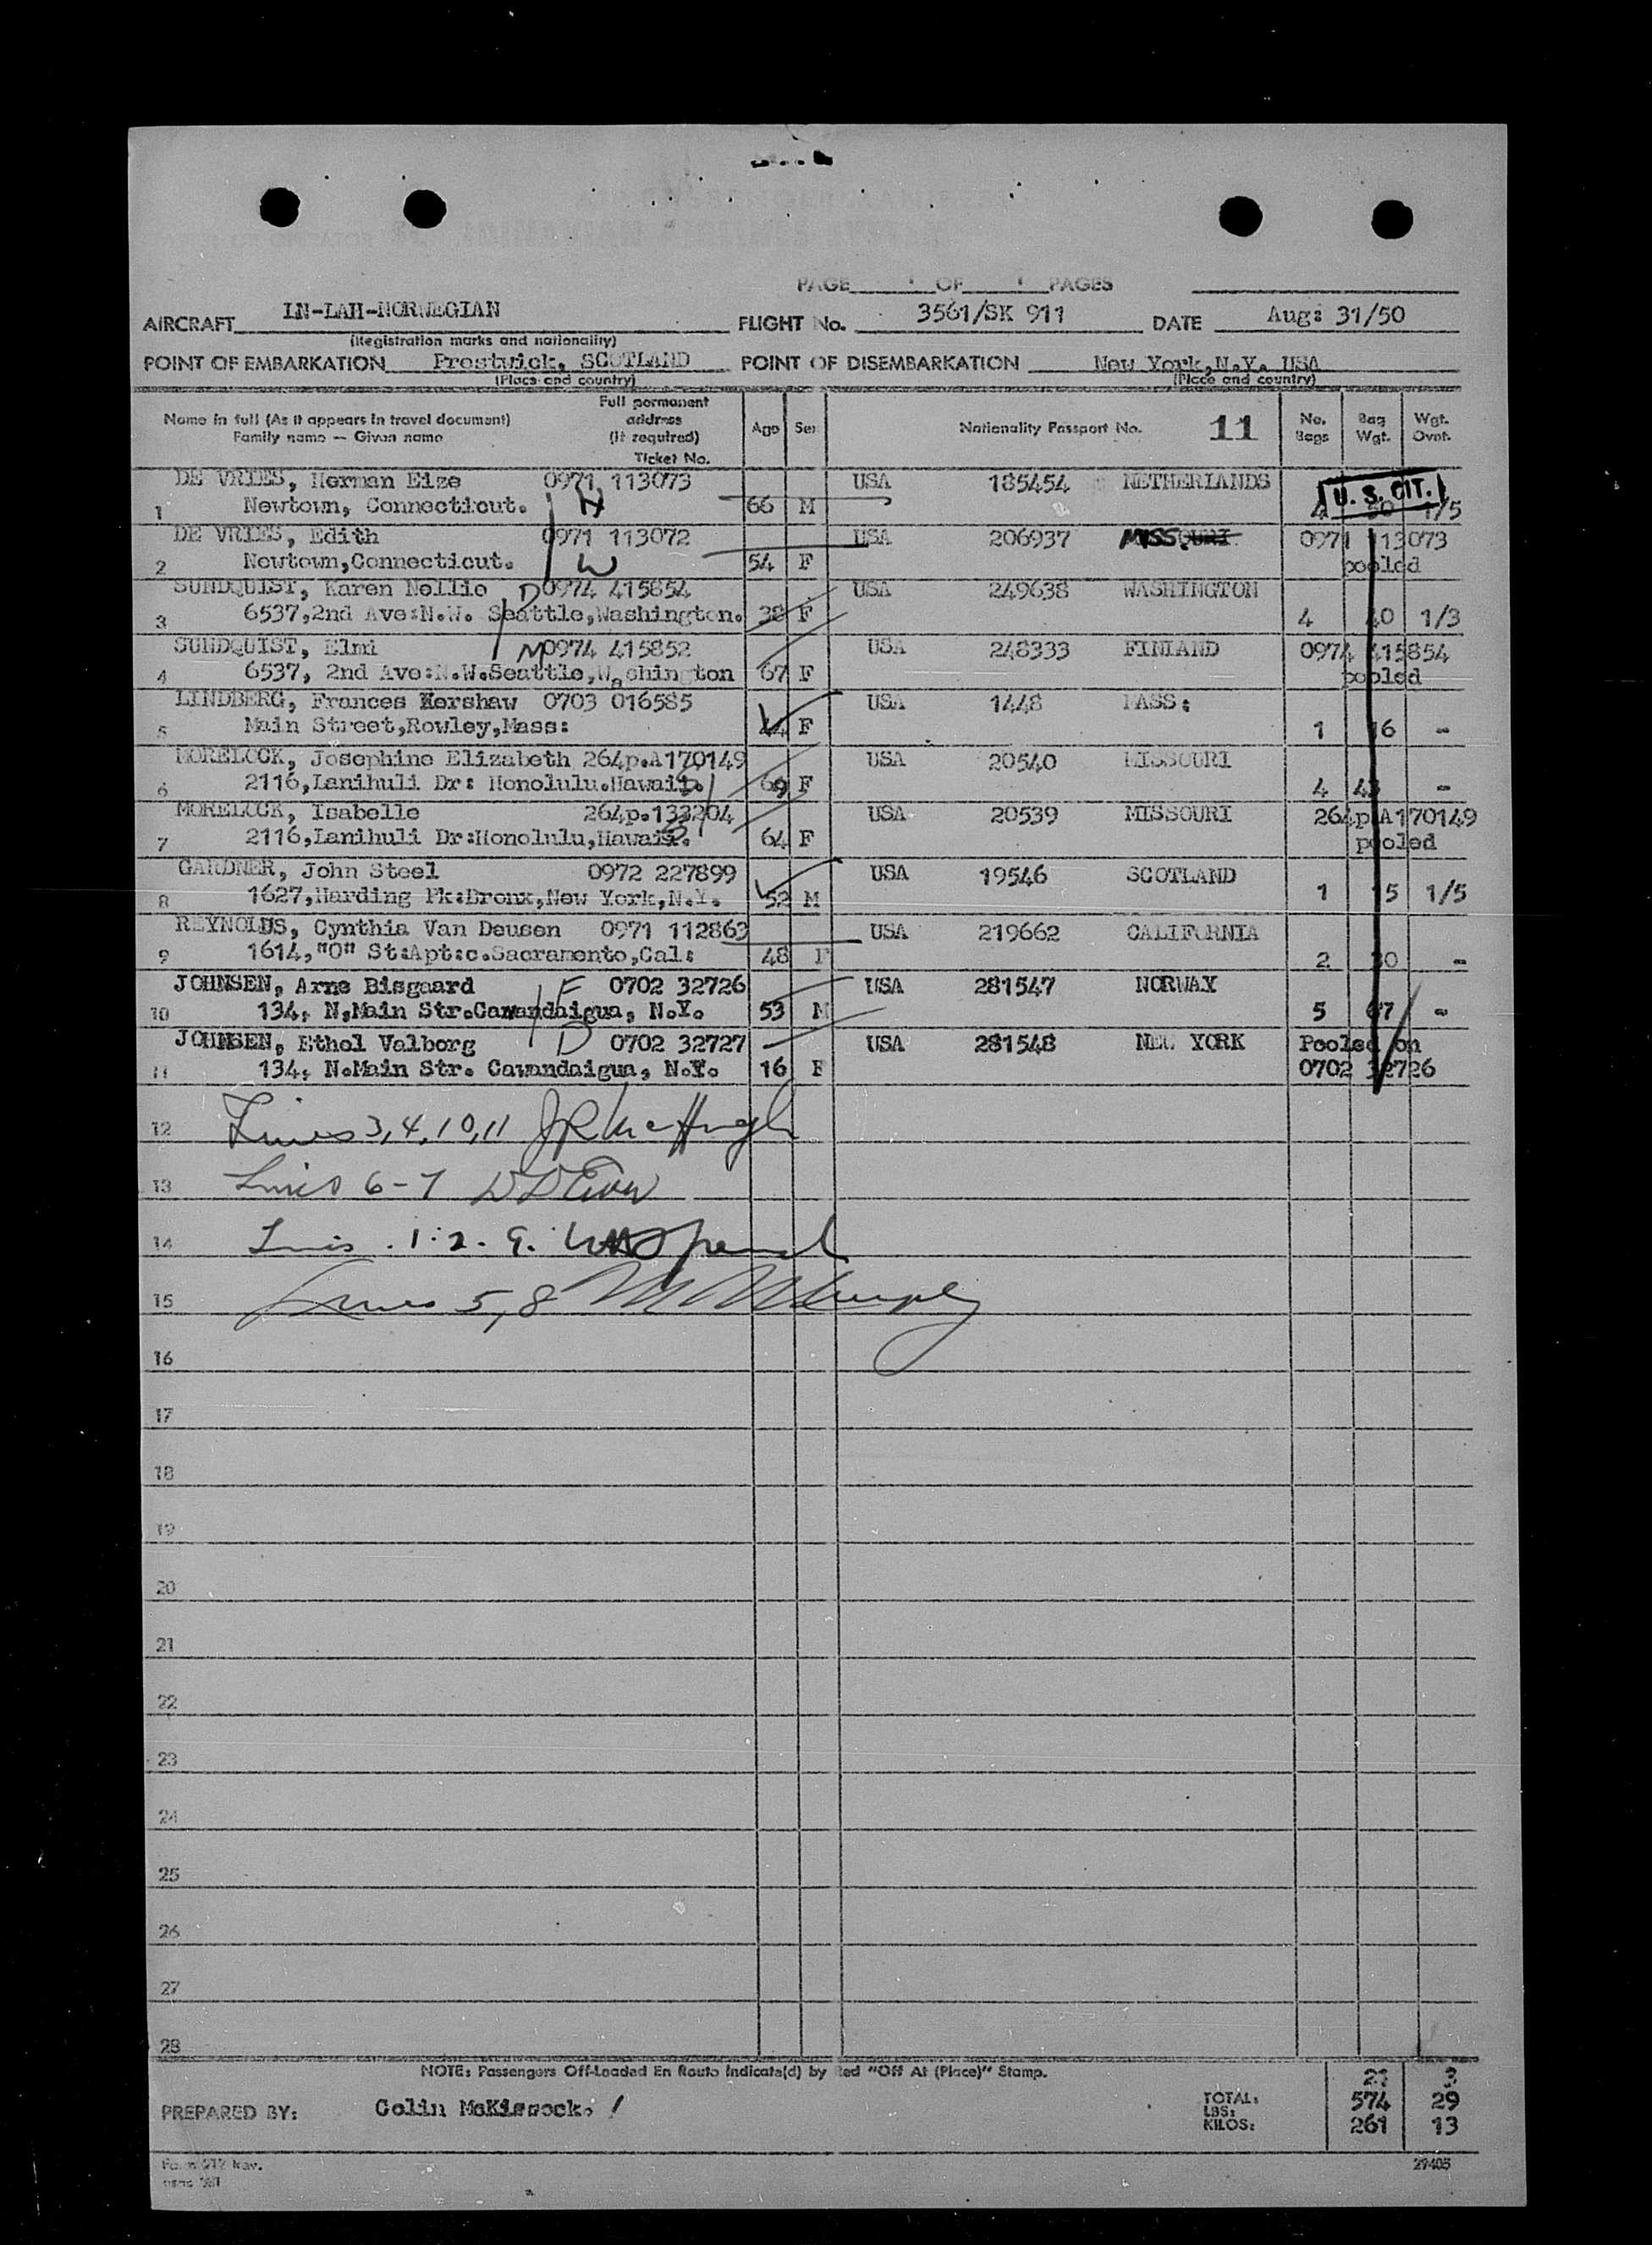 PAGE OF PAGES
AIRCRAFT LN-LAH-NORWEGIAN FLIGHT No. 3561/SK 911 DATE Aug: 31/50
(Registration marks and nationality)
POINT OF EMBARKATION Prestwick, SCOTLAND POINT OF DISEMBARKATION New York,N.Y. USA
(Place and country) (Place and country)
Name in full (As it appears in travel document) Family name — Given name Full permanent address (If required) Ticket No. Age Sex Nationality Passport No. 11 No. Bags Bag Wgt. Wgt. Ovnt.
DE VRIES, Herman Eize 0971 113073 USA 185454 NETHERLANDS U. S. CIT.
1 Newtown, Connecticut. H 66 M 4 1/5
DE VRIES, Edith 0971 113072 USA 206937 MISSOURI 0971 113073
2 Newtown,Connecticut. W 54 F pooled
SUNDQUIST, Karen Nellie D 0974 415854 USA 249638 WASHINGTON
3 6537,2nd Ave:N.W. Seattle,Washington. 38 F 4 40 1/3
SUNDQUIST, Elmi M 0974 415852 USA 248333 FINLAND 0974 415854
4 6537, 2nd Ave:N.W.Seattle,Washington 67 F pooled
LINDBERG, Frances Kershaw 0703 016585 USA 1448 MASS:
5 Main Street,Rowley,Mass: F 1 16 -
MORELOCK, Josephine Elizabeth 264p.A170149 USA 20540 MISSOURI
6 2116,Lanihuli Dr: Honolulu.Hawaii. 69 F 4 43 -
MORELOCK, Isabelle 264p.133204 USA 20539 MISSOURI 264p.A170149
7 2116,Lanihuli Dr:Honolulu,Hawaii. 64 F pooled
GARDNER, John Steel 0972 227899 USA 19546 SCOTLAND
8 1627,Harding Pk:Bronx,New York,N.Y. 52 M 1 15 1/5
REYNOLDS, Cynthia Van Deusen 0971 112863 USA 219662 CALIFORNIA
9 1614,"O" St:Apt:c.Sacramento,Cal: 48 F 2 30 -
JOHNSEN, Arne Bisgaard F 0702 32726 USA 281547 NORWAY
10 134, N,Main Str.Cawandaigua, N.Y. 53 M 5 67 -
JOHNSEN, Ethel Valborg D 0702 32727 USA 281548 NEW YORK Pooled on
11 134, N.Main Str. Cawandaigua, N.Y. 16 F 0702 32726
12 Lines 3,4,10,11 JR McHugh
13 Lines 6-7
14 Lines 1.2.9.
15 Lines 5,8 M Murphy
16
17
18
19
20
21
22
23
24
25
26
27
28
NOTE: Passengers Off-Loaded En Route Indicate(d) by Red "Off At (Place)" Stamp.
21 3
TOTAL:
LBS: 574 29
PREPARED BY: Colin McKissock. KILOS: 261 13
Form 217 Rev.
29405